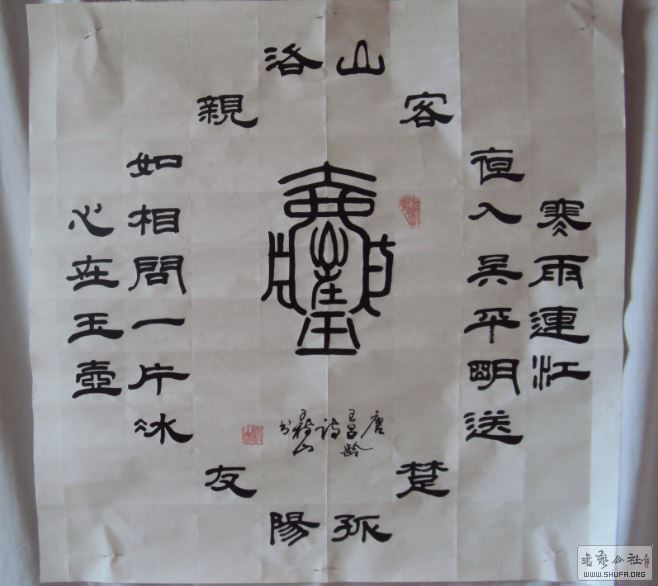 寒雨連江
夜入吳平明送
客楚
山孤
洛陽
親友
如相問一片冰
心在玉壺
唐
王昌齡
诗
山
书
书法公社
WWW.SHUFA.ORG